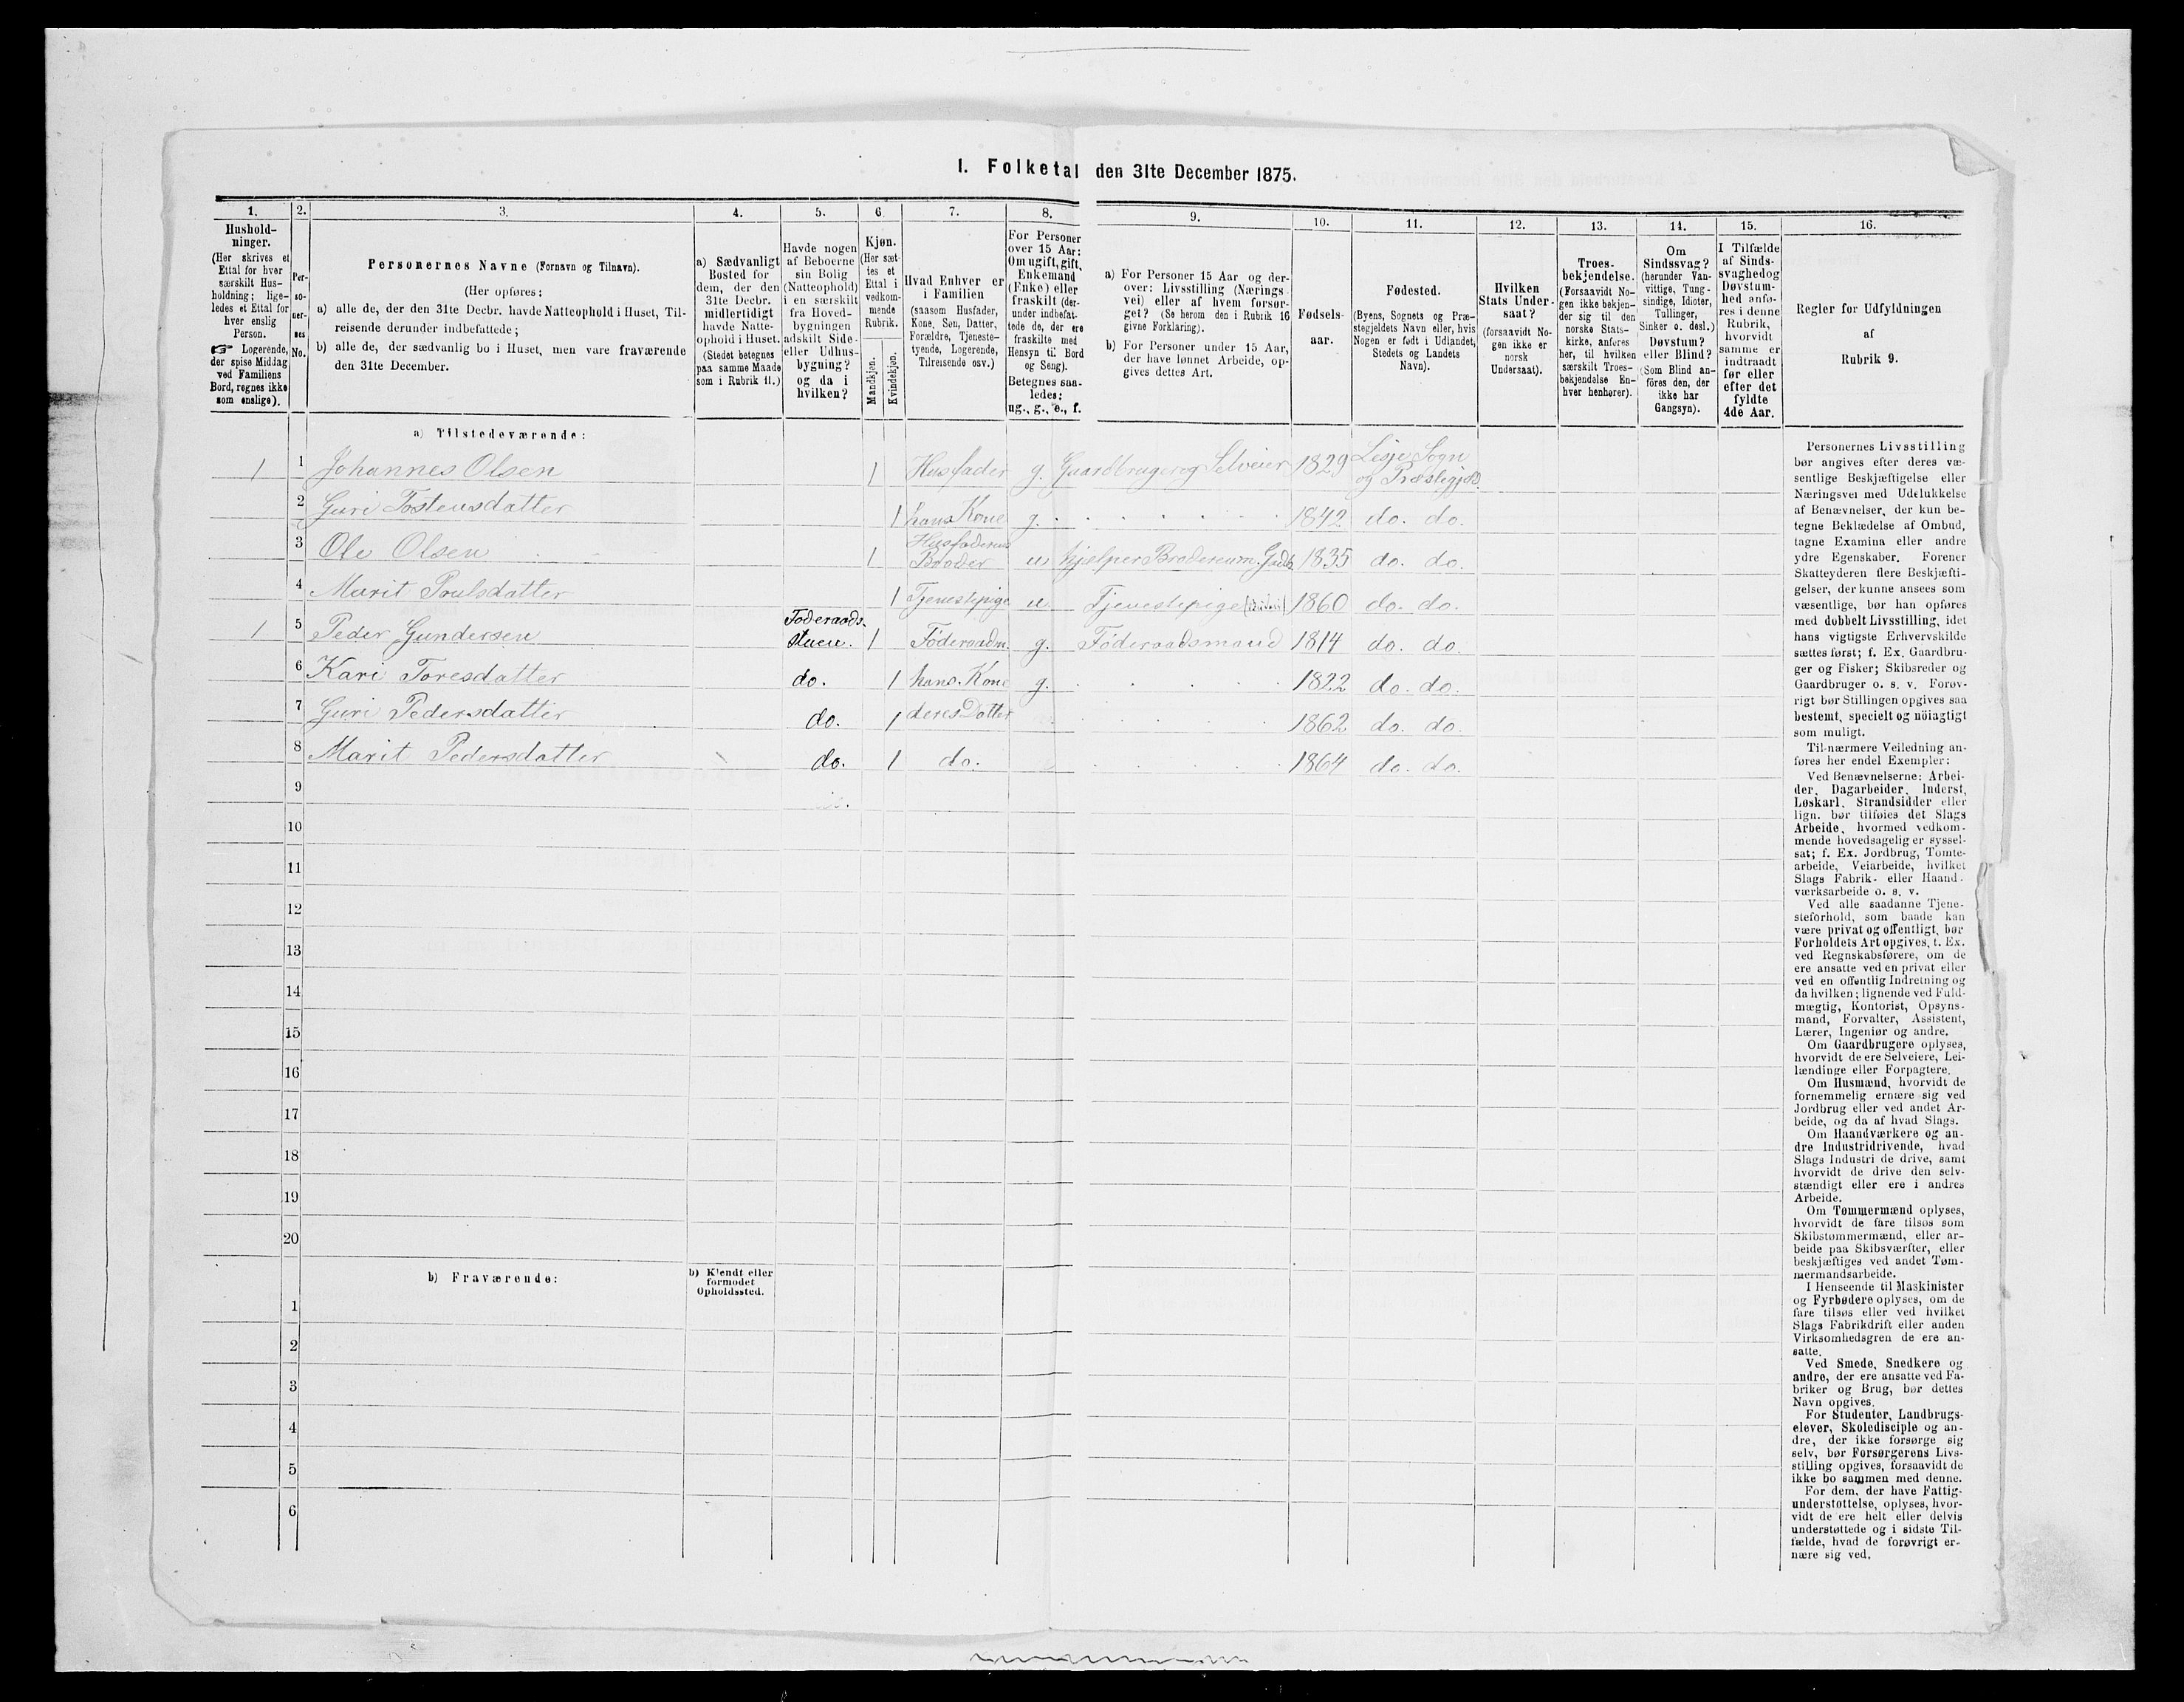 I. Folketal den 31te December 1875.
1. 2. 3. 4. 5. 6. 7. 8. 9. 10. 11. 12. 13. 14. 15. 16.
Hushold-
ninger.
(Her skrives et
Ettal for hver
særskilt Hus-
holdning; lige-
ledes et Ettal for
hver enslig
Person.
☞ Logerende,
der spise Middag
ved Familiens
Bord, regnes ikke
som enslige).
Per-
so-
ner-
nes
No.
Personernes Navne (Fornavn og Tilnavn).
(Her opføres:
a) alle de, der den 31te Decbr. havde Natteophold i Huset, Til-
reisende derunder indbefattede;
b) alle de, der sædvanlig bo i Huset, men vare fraværende
den 31te December.
a) Sædvanligt
Bosted for
dem, der den
31te Decbr.
midlertidigt
havde Natte-
ophold i Huset.
(Stedet betegnes
paa samme Maade
som i Rubrik 11.)
Havde nogen
af Beboerne
sin Bolig
(Natteophold)
i en særskilt
fra Hoved-
bygningen
adskilt Side-
eller Udhus-
bygning?
og da i
hvilken?
Kjøn.
(Her sæt-
tes et
Ettal i
vedkom-
mende
Rubrik.
Mandkjøn.
Kvindekjøn.
Hvad Enhver er
i Familien
(saasom Husfader,
Kone, Søn, Datter,
Forældre, Tjeneste-
tyende, Logerende,
Tilreisende osv.)
For Personer
over 15 Aar:
Om ugift, gift,
Enkemand
(Enke) eller
fraskilt (der-
under indbefat-
tede de, der ere
fraskilte med
Hensyn til Bord
og Seng).
Betegnes saa-
ledes:
ug., g., e., f.
a) For Personer 15 Aar og der-
over: Livsstilling (Nærings-
vei) eller af hvem forsør-
get? (Se herom den i Rubrik 16
givne Forklaring).
b) For Personer under 15 Aar,
der have lønnet Arbeide, op-
gives dettes Art.
Fødsels-
aar.
Fødested.
(Byens, Sognets og Præ-
stegjeldets Navn eller, hvis
Nogen er født i Udlandet,
Stedets og Landets
Navn).
Hvilken
Stats Under-
saat?
(forsaavidt No-
gen ikke er
norsk
Undersaat).
Troes-
bekjendelse.
(Forsaavidt No-
gen ikke bekjen-
der sig til den
norske Stats-
kirke, anføres
her, til hvilken
særskilt Troes-
bekjendelse En-
hver henhører).
Om
Sindssvag?
(herunder Van-
vittige, Tung-
sindige, Idioter,
Tullinger,
Sinker o. desl.)
Døvstum?
eller Blind?
(Som Blind an-
föres den, der
ikke har
Gangsyn).
I Tilfælde
af Sinds-
svaghed og
Døvstum-
hed anfø-
res i denne
Rubrik,
hvorvidt
samme er
indtraadt
før eller
efter det
fyldte
4de Aar.
Regler for Udfyldningen
af
Rubrik 9.
a) Tilstedeværende:
1 1 Johannes Olsen 1 Husfader g. Gaardbruger og Selveier 1829 Lesje Sogn
og Præstegjæld.
2 Guri Tostensdatter 1 hans Kone g. 1842 do. do.
3 Ole Olsen 1 Husfaderens
Broder u hjelper Broderen m. 1835 do. do.
4 Marit Poulsdatter 1 Tjenestepige u Tjenestepige 1860 do. do.
1 5 Peder Gundersen Foderaads-
stuen. 1 Föderaadm. g. Föderaadsmand 1814 do. do.
6 Kari Toresdatter do. 1 hans Kone g. 1822 do. do.
7 Guri Pedersdatter do. 1 deres Datter 1862 do. do.
8 Marit Pedersdatter do. 1 do. 1864 do. do.
9
10
11
12
13
14
15
16
17
18
19
20
b) Fraværende:
b) Kjendt eller
formodet
Opholdssted.
1
2
3
4
5
6
Personernes Livsstilling
bør angives efter deres væ-
sentlige Beskjæftigelse eller
Næringsvei med Udelukkelse
af Benævnelser, der kun be-
tegne Beklædelse af Ombud,
tagne Examina eller andre
ydre Egenskaber. Forener
Skatteyderen flere Beskjæfti-
gelser, der kunne ansees som
væsentlige, bør han opføres
med dobbelt Livsstilling, idet
hans vigtigste Erhvervskilde
sættes først; f. Ex. Gaardbru-
ger og Fisker; Skibsreder og
Gaardbruger o. s. v. Forøv-
rigt bør Stillingen opgives saa
bestemt, specielt og nöiagtigt
som muligt.
Til nærmere Veiledning an-
føres her endel Exempler:
Ved Benævnelserne: Arbei-
der, Dagarbeider, Inderst,
Løskarl, Strandsidder eller
lign. bør tilføies det Slags
Arbeide, hvormed vedkom-
mende hovedsagelig er syssel-
sat; f. Ex. Jordbrug, Tomte-
arbeide, Veiarbeide, hvilket
Slags Fabrik- eller Haand-
værksarbeide o. s. v.
Ved alle saadanne Tjene-
steforhold, som baade kan
være privat og offentligt, bør
Forholdets Art opgives, t. Ex.
ved Regnskabsførere, om de
ere ansatte ved en privat eller
ved en offentlig Indretning og
da hvilken; lignende ved Fuld-
mægtig, Kontorist, Opsyns-
mand, Forvalter, Assistent,
Lærer, Ingeniør og andre.
Om Gaardbrugere oplyses,
hvorvidt de ere Selveiere, Lei-
lændinge eller Forpagtere.
Om Husmænd, hvorvidt de
fornemmelig ernære sig ved
Jordbrug eller ved andet Ar-
beide, og da af hvad Slags.
Om Haandværkere og an-
dre Industridrivende, hvad
Slags Industri de drive, samt
hvorvidt de drive den selv-
stændigt eller ere i andres
Arbeide.
Om Tømmermænd oplyses,
hvorvidt de fare tilsøs som
Skibstømmermænd, eller ar-
beide paa Skibsværfter, eller
beskjæftiges ved andet Tøm-
mermandsarbeide.
I Henseende til Maskinister
og Fyrbødere oplyses, om de
fare tilsøs eller ved hvilket
Slags Fabrikdrift eller anden
Virksomhedsgren de ere an-
satte.
Ved Smede, Snedkere og
andre, der ere ansatte ved Fa-
briker og Brug, bør dettes
Navn opgives.
For Studenter, Landbrugs-
elever, Skoledisciple og an-
dre, der ikke forsørge sig
selv, bør Forsørgerens Livs-
stilling opgives, forsaavidt de
ikke bo sammen med denne.
For dem, der have Fattig-
understøttelse, oplyses, hvor-
vidt de ere helt eller delvis
understøttede og i sidste Til-
fælde, hvad de forøvrigt er-
nære sig ved.